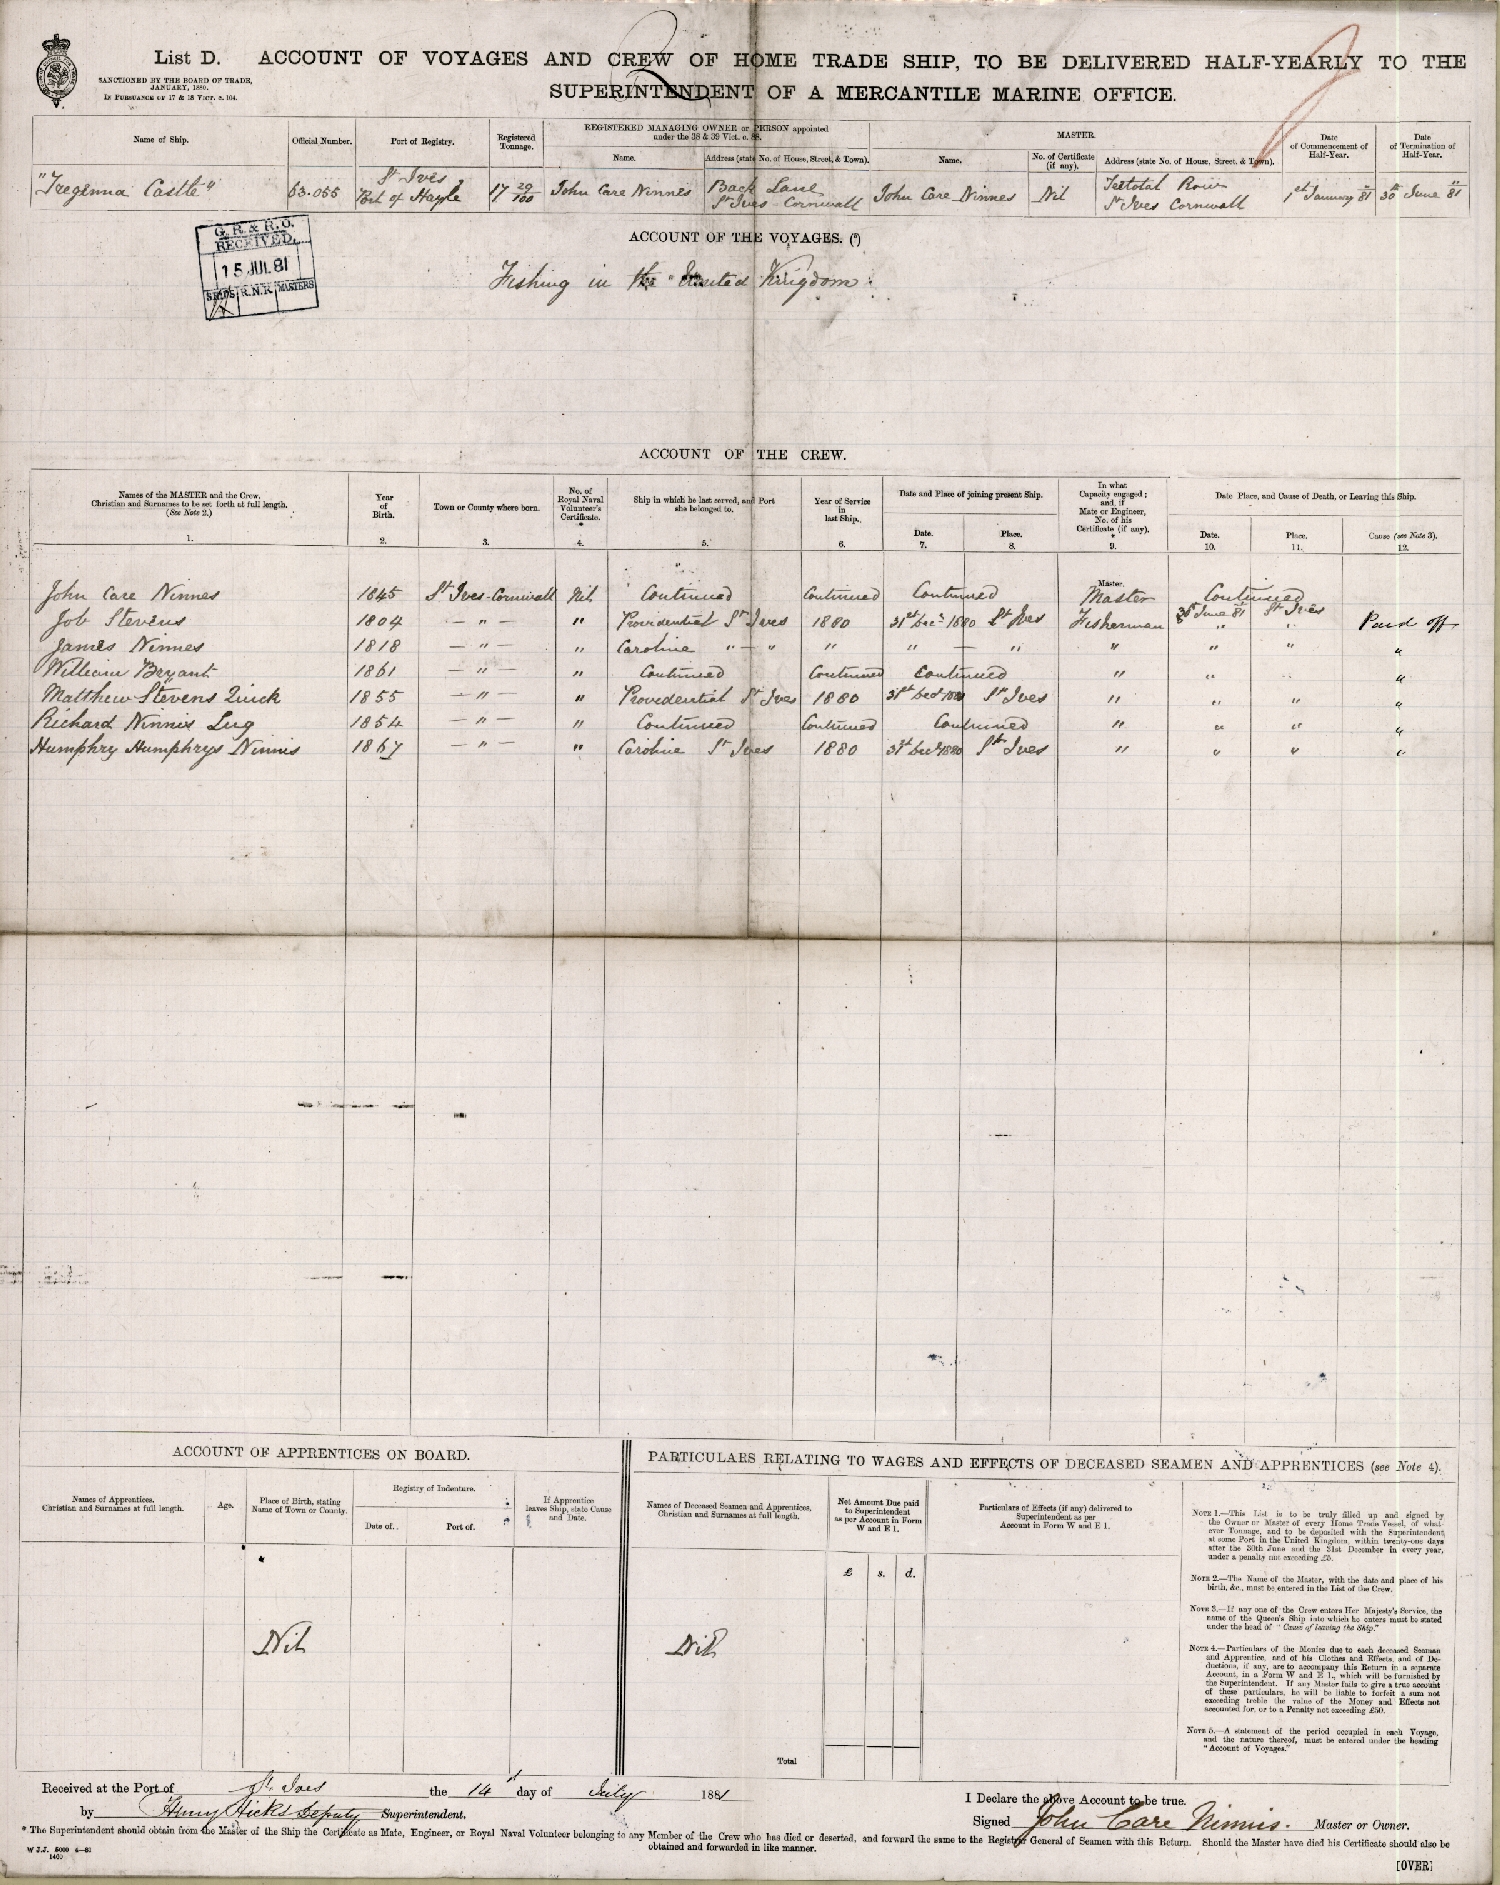 List D. ACCOUNT OF VOYAGES AND CREW OF HOME TRADE SHIP, TO BE DELIVERED HALF-YEARLY TO THE
SUPERINTENDENT OF A MERCANTILE MARINE OFFICE.
SANCTIONED BY THE BOARD OF TRADE,
JANUARY, 1880.
IN PURSUANCE OF 17 & 18 VICT. c. 104.
Name of Ship. Official Number. Port of Registry. Registered Tonnage. REGISTERED MANAGING OWNER or PERSON appointed under the 38 & 39 Vict. c. 88. MASTER. Date of Commencement of Half-Year. Date of Termination of Half-Year.
Name. Address (state No. of House, Street, & Town). Name. No. of Certificate (if any). Address (state No. of House, Street, & Town).
"Tregenna Castle" 63.055 St Ives Port of Hayle 17 29/100 John Care Ninnes Back Lane St Ives - Cornwall John Care Ninnes Nil Teetotal Row St Ives Cornwall 1st January 81 30th June 81
G. R. & R. O.
RECEIVED
15 JUL 81
R.N.R. MASTERS
ACCOUNT OF THE VOYAGES. (5)
Fishing in the United Kingdom
ACCOUNT OF THE CREW.
Names of the MASTER and the Crew, Christian and Surnames to be set forth at full length. (See Note 2.) Year of Birth. Town or County where born. No. of Royal Naval Volunteer's Certificate. * Ship in which he last served, and Port she belonged to. Year of Service in last Ship. Date and Place of joining present Ship. In what Capacity engaged; and, if Mate or Engineer, No. of his Certificate (if any). * Date Place, and Cause of Death, or Leaving this Ship.
Date. Place. Date. Place. Cause (see Note 3).
1. 2. 3. 4. 5. 6. 7. 8. 9. 10. 11. 12.
Master.
John Care Ninnes 1845 St Ives - Cornwall Nil Continued Continued Continued Master Continued
Job Stevens 1804 — " — " Providential St Ives 1880 31st Decr 1880 St Ives Fisherman 30 June 81 St Ives Paid off
James Ninnes 1818 — " — " Caroline " — " " " — " " " " "
William Bryant 1861 — " — " Continued Continued Continued " " " "
Matthew Stevens Quick 1855 — " — " Providential St Ives 1880 31st Decr 1880 St Ives " " " "
Richard Ninnis Lug 1854 — " — " Continued Continued Continued " " " "
Humphry Humphrys Ninnis 1867 — " — " Caroline St Ives 1880 31st Decr 1880 St Ives " " " "
ACCOUNT OF APPRENTICES ON BOARD.
Names of Apprentices. Christian and Surnames at full length. Age. Place of Birth, stating Name of Town or County. Registry of Indenture. If Apprentice leaves Ship, state Cause and Date.
Date of. Port of.
Nil
PARTICULARS RELATING TO WAGES AND EFFECTS OF DECEASED SEAMEN AND APPRENTICES (see Note 4).
Names of Deceased Seamen and Apprentices, Christian and Surnames at full length. Net Amount Due paid to Superintendent as per Account in Form W and E 1. Particulars of Effects (if any) delivered to Superintendent as per Account in Form W and E 1.
£ s. d.
Nil
Total
NOTE 1.—This List is to be truly filled up and signed
by the Owner or Master of every Home Trade Vessel, of what-
ever Tonnage, and to be deposited with the Superintendent
at some Port in the United Kingdom, within twenty-one days
after the 30th June and the 31st December in every year,
under a penalty not exceeding £5.
NOTE 2.—The Name of the Master, with the date and place of his
birth, &c., must be entered in the List of the Crew.
NOTE 3.—If any one of the Crew enters Her Majesty's Service, the
name of the Queen's Ship into which he enters must be stated
under the head of "Cause of leaving the Ship."
NOTE 4.—Particulars of the Monies due to each deceased Seaman
and Apprentice, and of his Clothes and Effects, and of De-
ductions, if any, are to accompany this Return in a separate
Account, in a Form W and E 1., which will be furnished by
the Superintendent. If any Master fails to give a true account
of these particulars, he will be liable to forfeit a sum not
exceeding treble the value of the Money and Effects not
accounted for, or to a Penalty not exceeding £50.
NOTE 5.—A statement of the period occupied in each Voyage,
and the nature thereof, must be entered under the heading
"Account of Voyages."
Received at the Port of St Ives the 14 day of July 1881
by Henry Hicks Deputy Superintendent.
I Declare the above Account to be true.
Signed John Care Ninnis. Master or Owner.
* The Superintendent should obtain from the Master of the Ship the Certificate as Mate, Engineer, or Royal Naval Volunteer belonging to any Member of the Crew who has died or deserted, and forward the same to the Registry General of Seamen with this Return. Should the Master have died his Certificate should also be
obtained and forwarded in like manner.
W J.J. 5000 4—80
1400
[OVER]